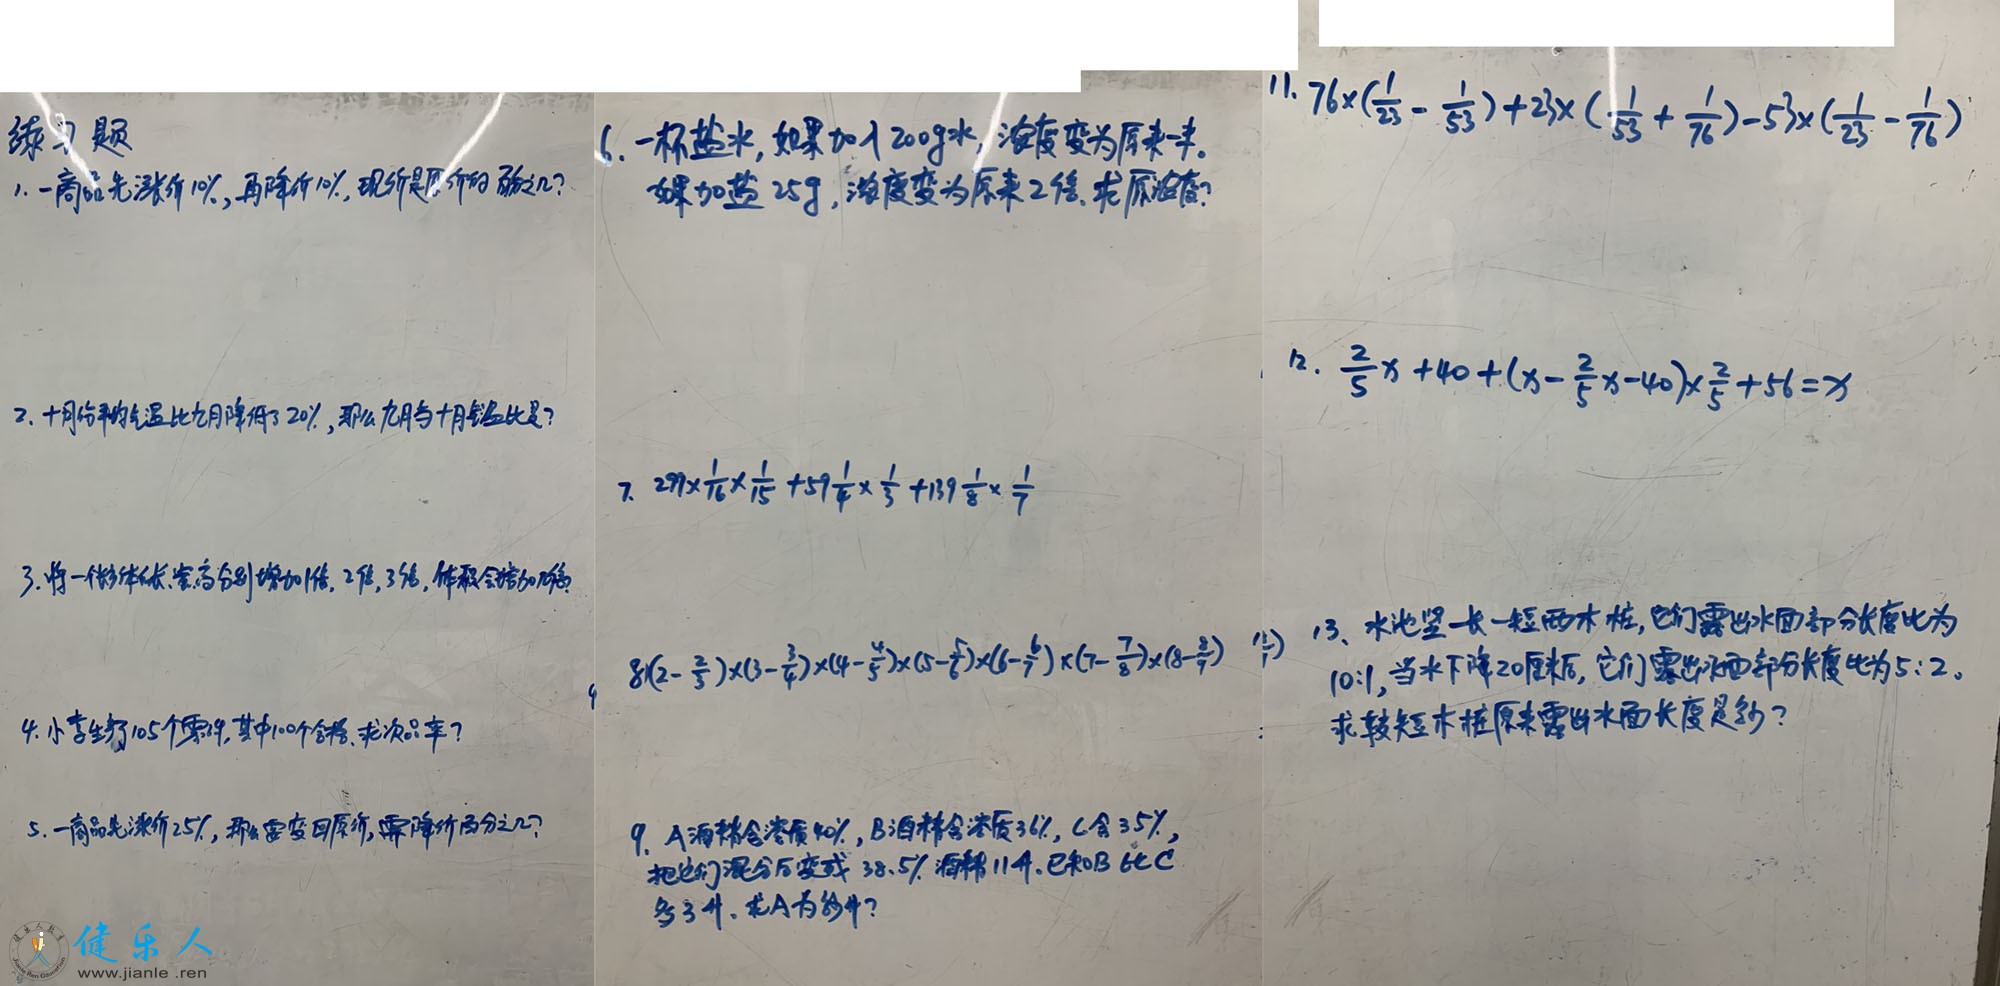 练习题
1. 一商品先涨价10%, 再降价10%, 现价是原价的百分之几?
2. 十月份平均气温比九月降低了20%, 那么九月与十月气温比是?
3. 将一长方体长、宽、高分别增加1倍, 2倍, 3倍, 体积会增加几倍
4. 小李生产了105个零件, 其中100个合格, 求次品率?
5. 一商品先涨价25%, 那么要变回原价, 需降价百分之几?
6. 一杯盐水, 如果加入200g水, 浓度变为原来一半。
如果加盐25g, 浓度变为原来2倍. 求原浓度?
7. 299×1/16×1/15+59 1/4×1/3+139 1/8×1/7
8. (2-2/3)×(3-3/4)×(4-4/5)×(5-5/6)×(6-6/7)×(7-7/8)×(8-8/9)
9. A酒精含溶质40%, B酒精含溶质36%, C含35%,
把它们混合后变成38.5%酒精11升. 已知B比C
多3升. 求A为多少升?
11. 76×(1/23-1/53)+23×(1/53+1/76)-53×(1/23-1/76)
12. 2/5x+40+(x-2/5x-40)×2/5+56=x
13、水池竖一长一短两木桩, 它们露出水面部分长度比为
10:1, 当水下降20厘米后, 它们露出水面部分长度比为5:2。
求较短木桩原来露出水面长度是多少?
健乐人
www.jianle .ren